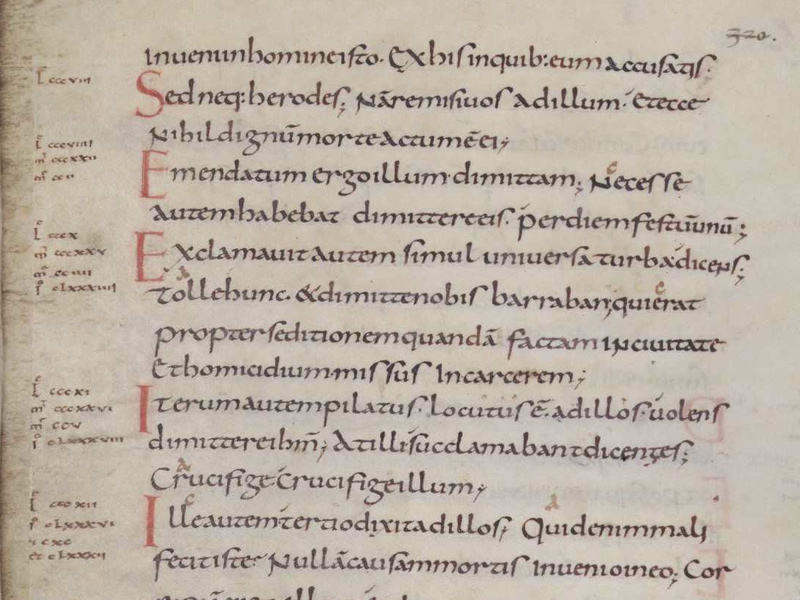 320.
invenin homine isto. Ex his in quib: eum accusatis.
Sed neq: herodes; Nā remisi vos ad illum. Et ecce
Nihil dignū morte actum ē ei;
Emendatum ergo illum dimittam; Necesse
autem habebat dimittere eis. per diem festū unū;
Exclamavit autem simul universa turba dicens;
tolle hunc. & dimitte nobis barraban; qui erat
propter seditionem quandā factam in civitate
Et homicidium. missus In carcerem;
Iterum autem pilatus. locutus ē. ad illos. volens
dimittere ihm̄; At illi succlamabant dicentes;
Crucifige Crucifige illum;
Ille autem tertio dixit ad illos; Quid enim mali
fecit iste. Nullā causam mortis Invenio in eo; Cor